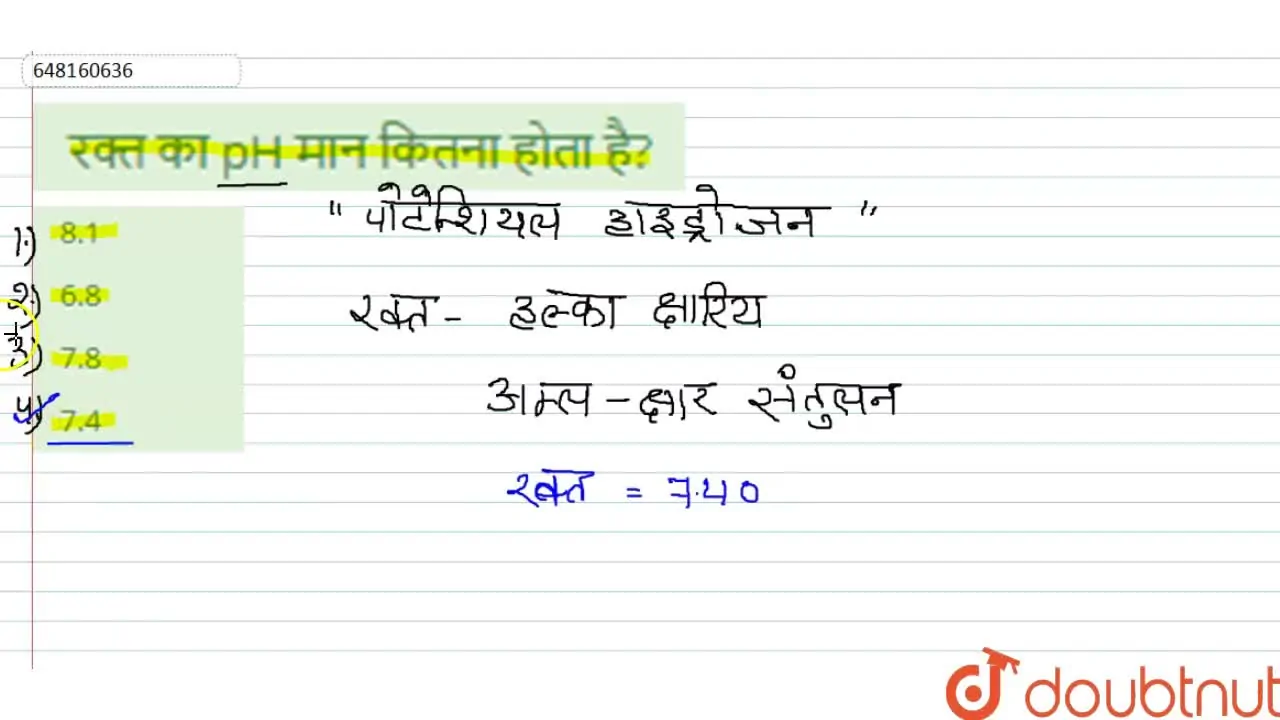 648160636
रक्त का pH मान कितना होता है?
" पोटेन्शियल हाइड्रोजन "
1.) 8.1
2.) 6.8
रक्त - हल्का क्षारिय
3) 7.8
अम्ल - क्षार संतुलन
4) 7.4
रक्त = 7.40
doubtnut